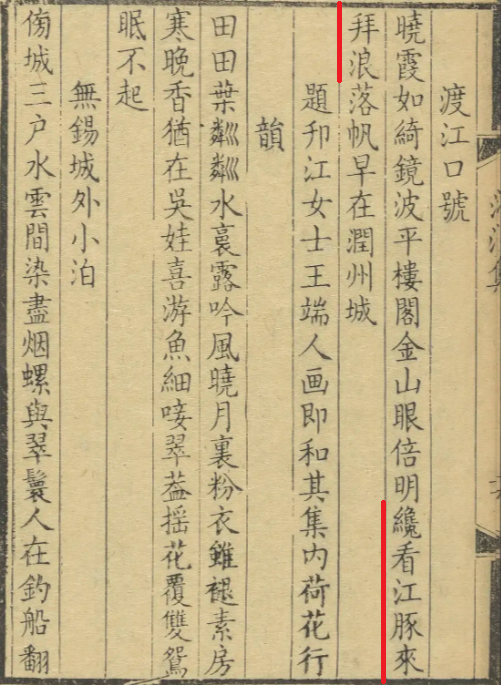 渡江口號
曉霞如綺鏡波平樓閣金山眼倍明纔看江豚來
拜浪落帆早在潤州城
題邗江女士王端人画即和其集内荷花行
韻
田田葉粼粼水裛露吟風曉月裏粉衣雖褪素房
寒晚香猶在吳娃喜游魚細唼翠葢揺花覆雙鴛
眠不起
無錫城外小泊
傍城三户水雲間染盡烟螺與翠鬟人在釣船翻